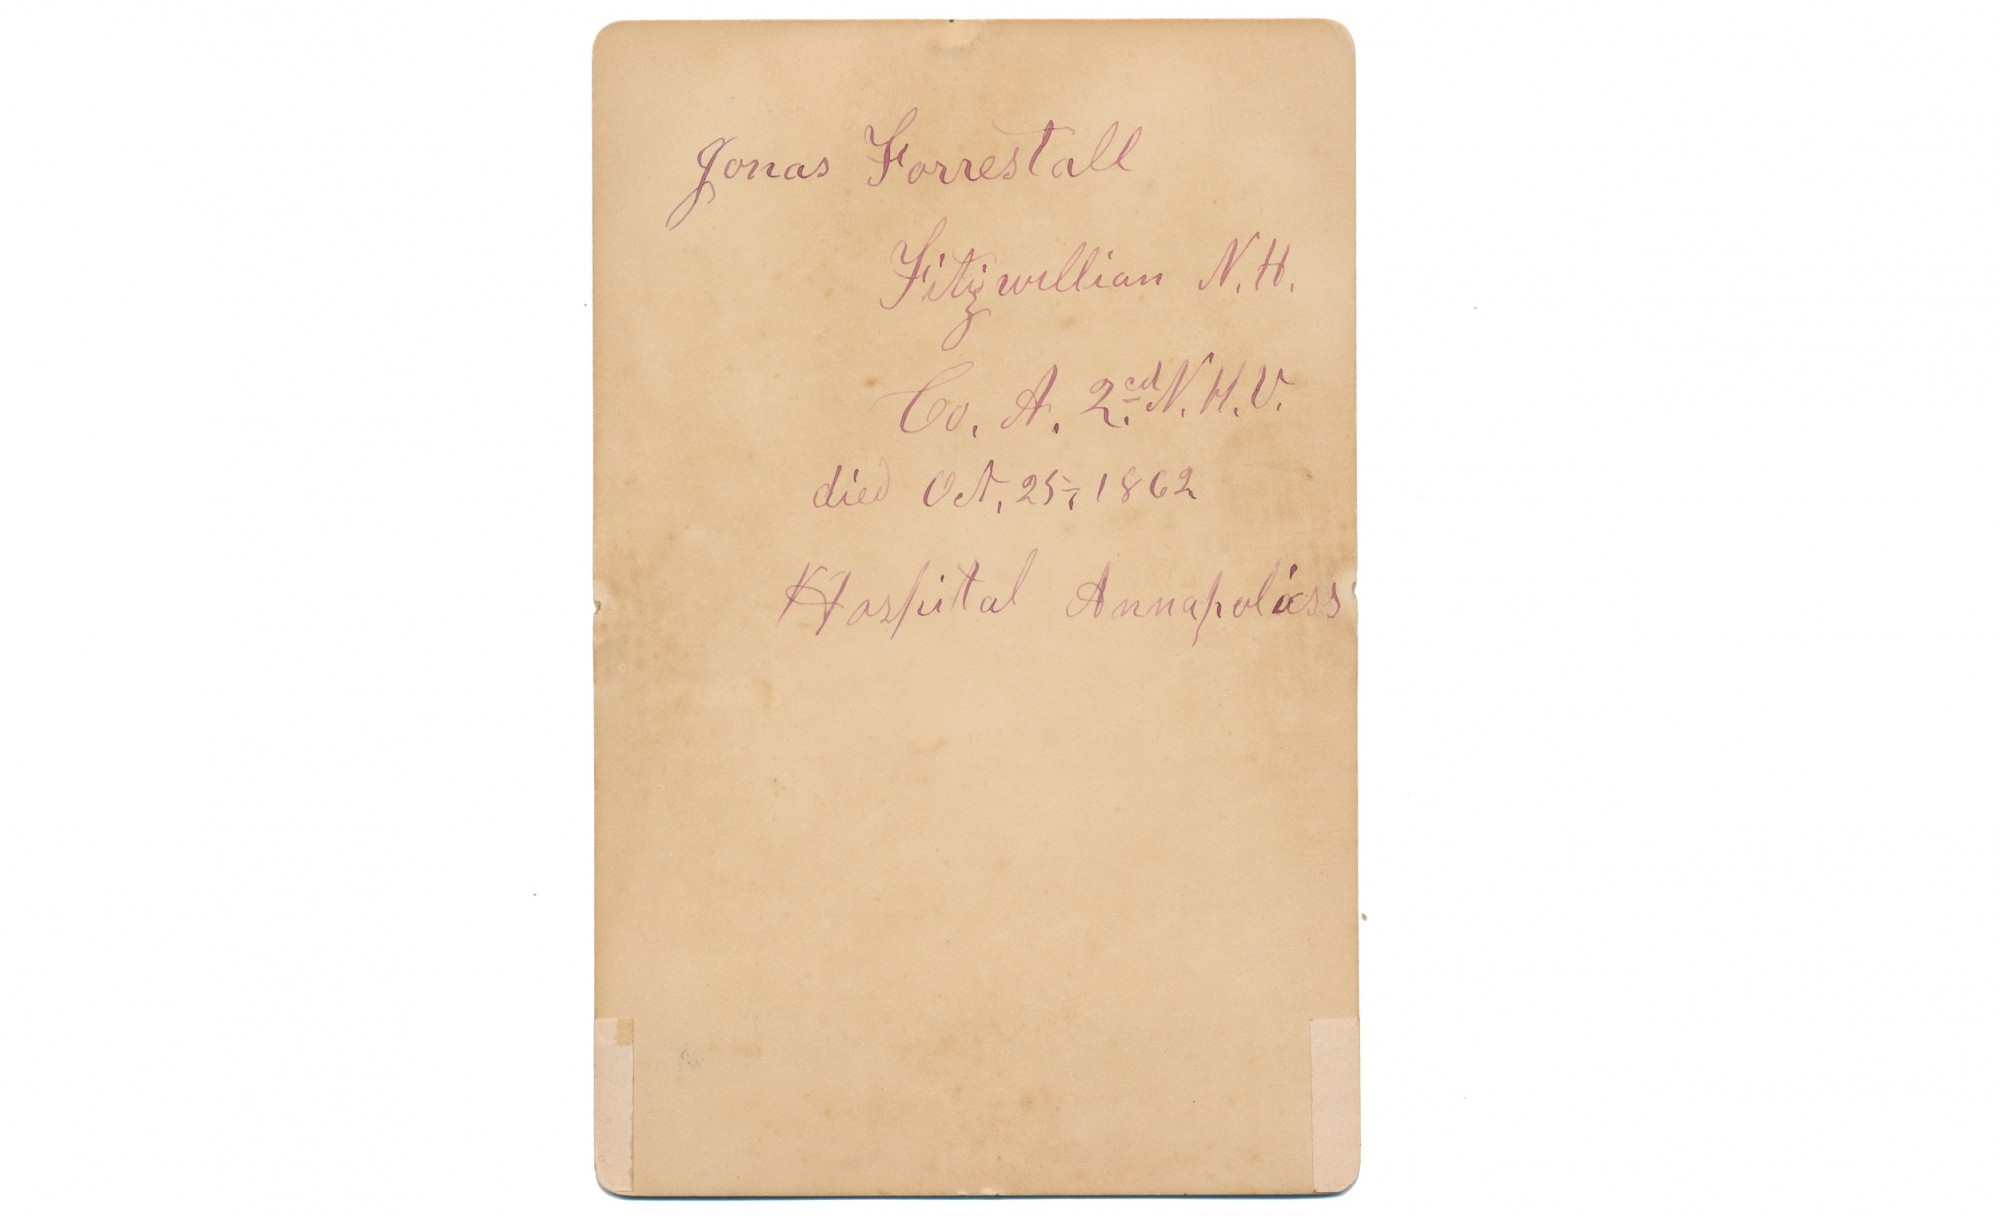 Jonas Forrestall
Fitzwillian N.H.
Co. A. 2.ed N.H.V.
died Oct, 25, 1862
Hospital Annapolis